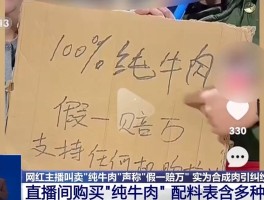 100%纯牛肉
假一赔万
支持任何
330
网红主播叫卖"纯牛肉"声称"假一赔万" 实为合成肉引纠纷
直播间购买"纯牛肉" 配料表含多种